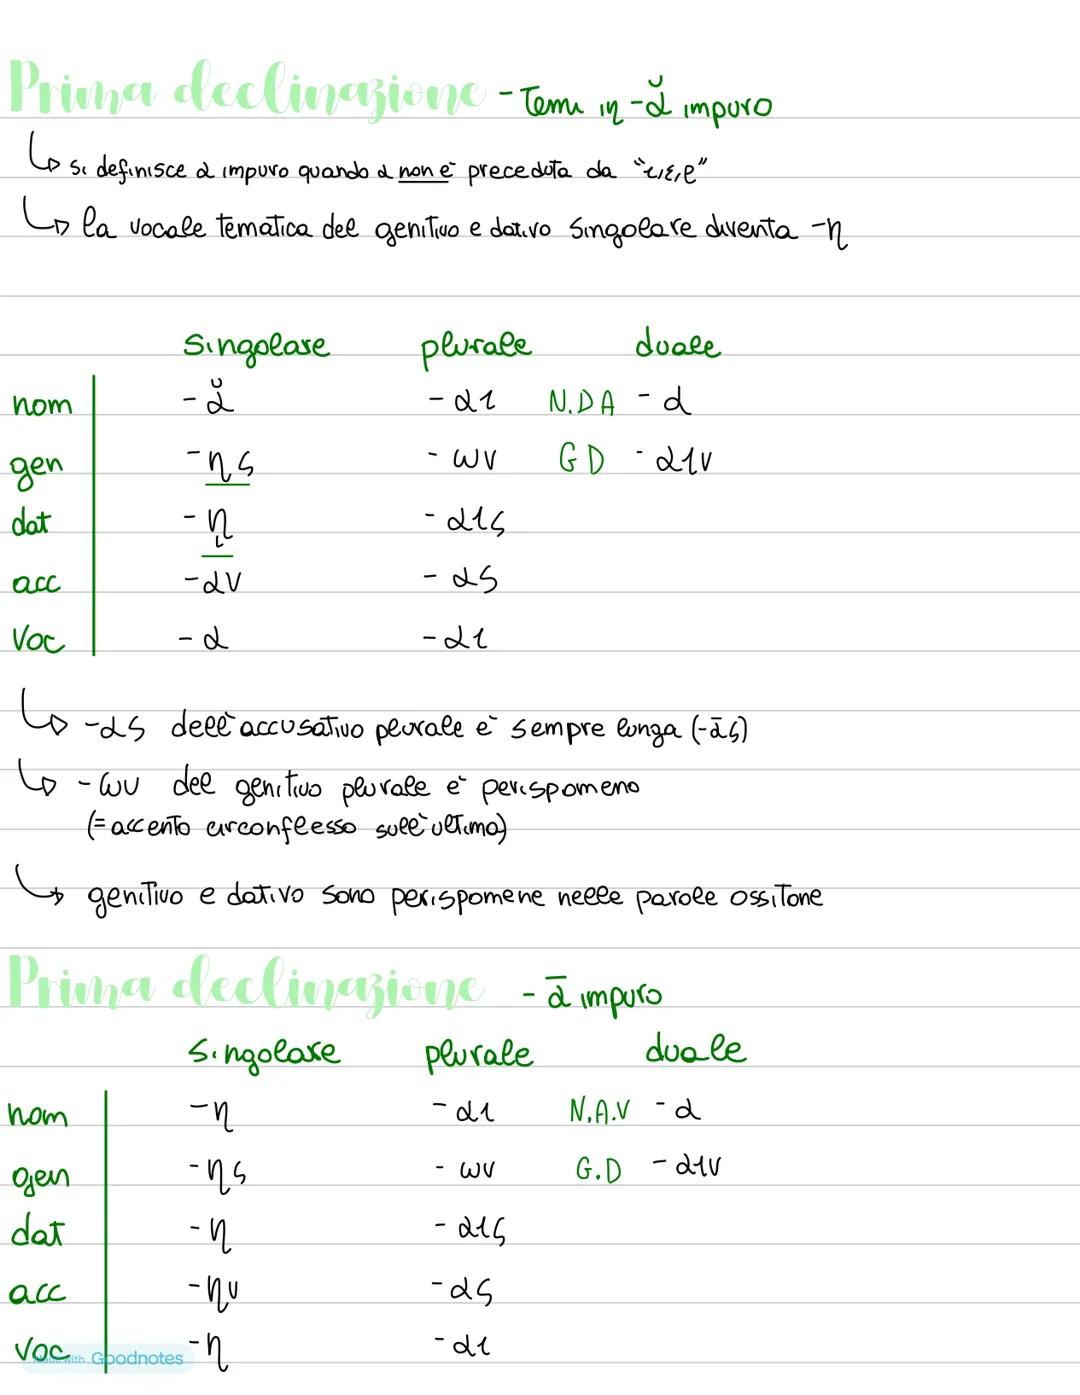 Prima declinazione - Temi in -ᾰ impuro
↳ si definisce α impuro quando α non è preceduta da "ι,ε,ρ"
↳ la vocale tematica del genitivo e dativo singolare diventa -η
singolare plurale duale
nom -ᾰ -αι N.DA -α
gen -ης -ων GD -αιν
dat -ῃ -αις
acc -αν -ας
voc -α -αι
↳ -ας dell'accusativo plurale è sempre lunga (-ᾱς)
↳ -ων del genitivo plurale è perispomeno
(= accento circonflesso sull'ultima)
↳ genitivo e dativo sono perispomene nelle parole ossitone
Prima declinazione - ᾱ impuro
singolare plurale duale
nom -η -αι N.A.V -α
gen -ης -ων G.D -αιν
dat -η -αις
acc -ην -ας
voc -η -αι
Made with Goodnotes